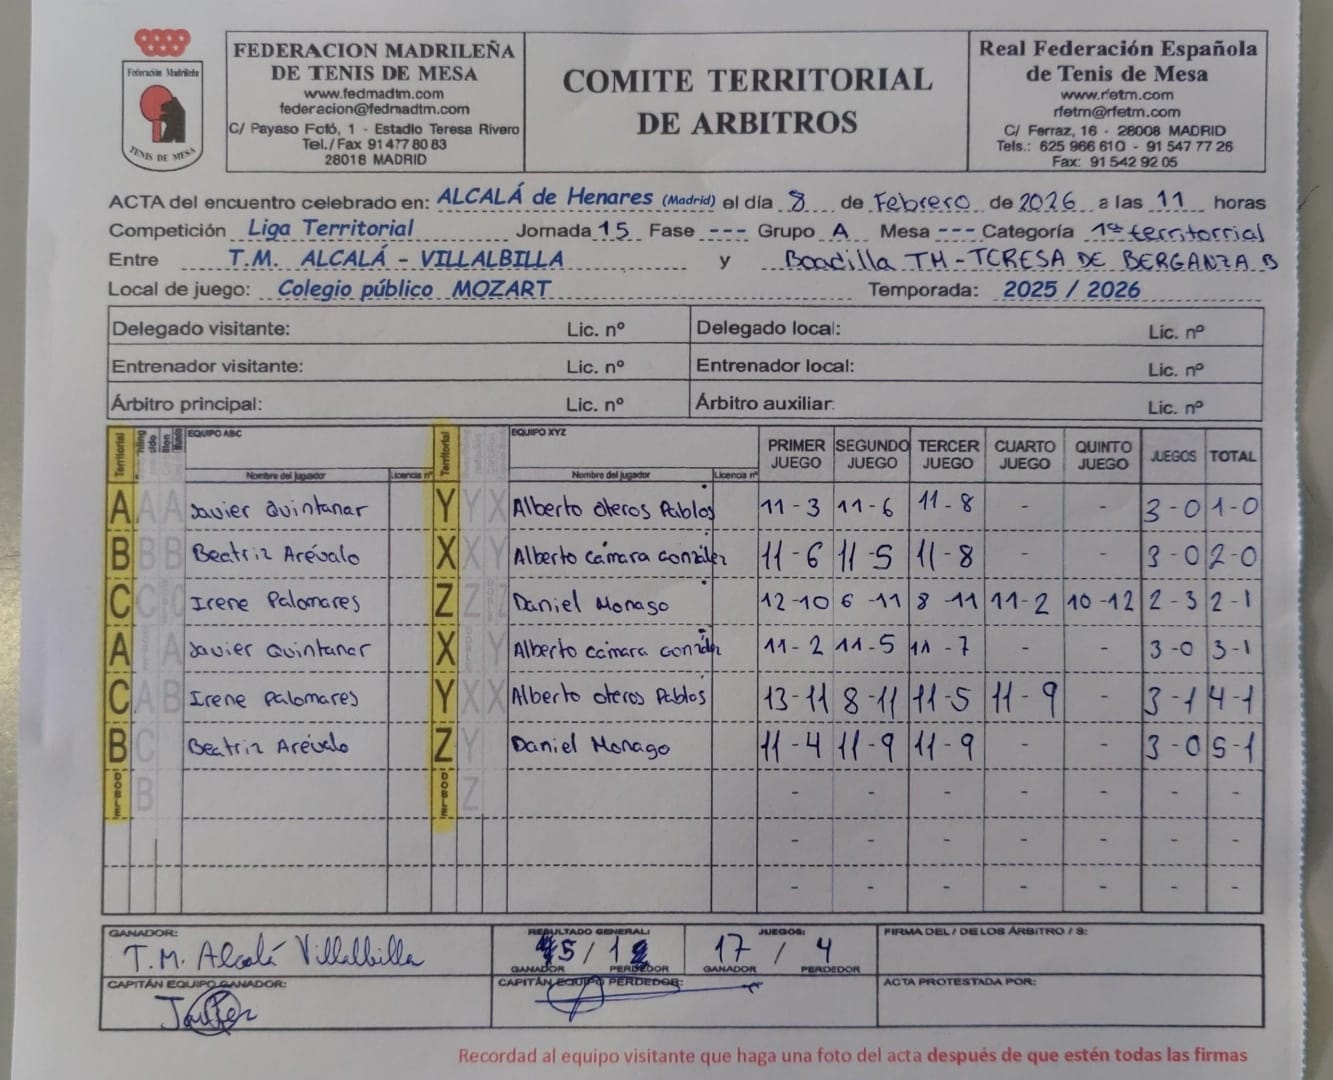 Federación Madrileña
TENIS DE MESA
FEDERACION MADRILEÑA
DE TENIS DE MESA
www.fedmadtm.com
federacion@fedmadtm.com
C/ Payaso Fofó, 1 - Estadio Teresa Rivero
Tel./Fax 91 477 80 83
28018 MADRID
COMITE TERRITORIAL
DE ARBITROS
Real Federación Española
de Tenis de Mesa
www.rfetm.com
rfetm@rfetm.com
C/ Ferraz, 16 - 28008 MADRID
Tels.: 625 966 610 - 91 547 77 26
Fax: 91 542 92 05
ACTA del encuentro celebrado en: ALCALÁ de Henares (Madrid) el día 8 de Febrero de 2026 a las 11 horas
Competición Liga Territorial Jornada 15 Fase --- Grupo A Mesa --- Categoría 1ª territorrial
Entre T.M. ALCALÁ - VILLALBILLA y Boadilla TM - TERESA DE BERGANZA B
Local de juego: Colegio público MOZART Temporada: 2025 / 2026
Delegado visitante: Lic. nº Delegado local: Lic. nº
Entrenador visitante: Lic. nº Entrenador local: Lic. nº
Árbitro principal: Lic. nº Árbitro auxiliar: Lic. nº
Territorial EQUIPO ABC Territorial EQUIPO XYZ PRIMER JUEGO SEGUNDO JUEGO TERCER JUEGO CUARTO JUEGO QUINTO JUEGO JUEGOS TOTAL
Nombre del jugador Licencia nº Nombre del jugador Licencia nº
A A A Javier Quintanar Y Y X Alberto Oteros Pablos 11 - 3 11 - 6 11 - 8 - - 3 - 0 1 - 0
B B B Beatriz Arévalo X X Y Alberto Cámara González 11 - 6 11 - 5 11 - 8 - - 3 - 0 2 - 0
C C C Irene Palomares Z Z Z Daniel Monago 12 - 10 6 - 11 8 - 11 11 - 2 10 - 12 2 - 3 2 - 1
A A Javier Quintanar X Y Alberto Cámara González 11 - 2 11 - 5 11 - 7 - - 3 - 0 3 - 1
C A B Irene Palomares Y X X Alberto Oteros Pablos 13 - 11 8 - 11 11 - 5 11 - 9 - 3 - 1 4 - 1
B C Beatriz Arévalo Z Y Daniel Monago 11 - 4 11 - 9 11 - 9 - - 3 - 0 5 - 1
DOBLE B DOBLE Z - - - - - - -
- - - - - - -
- - - - - - -
GANADOR: T.M. Alcalá Villalbilla
RESULTADO GENERAL: 5 / 1
GANADOR PERDEDOR
JUEGOS: 17 / 4
GANADOR PERDEDOR
FIRMA DEL / DE LOS ÁRBITRO / S:
CAPITÁN EQUIPO GANADOR:
CAPITÁN EQUIPO PERDEDOR:
ACTA PROTESTADA POR:
Recordad al equipo visitante que haga una foto del acta después de que estén todas las firmas